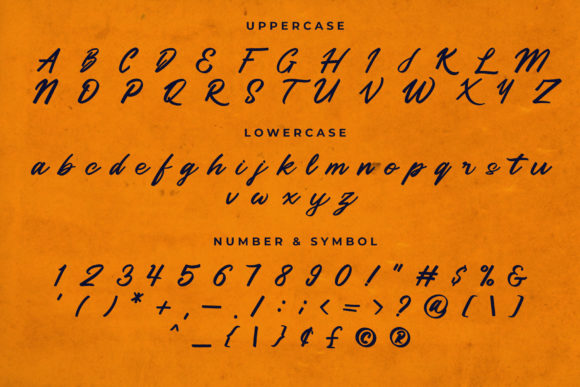 UPPERCASE
A B C D E F G H I J K L M
N O P Q R S T U V W X Y Z
LOWERCASE
a b c d e f g h i j k l m n o p q r s t u
v w x y z
NUMBER & SYMBOL
1 2 3 4 5 6 7 8 9 0 ! " # $ % &
' ( ) * + , – . / : ; < = > ? @ [ \ ]
^ _ { | } ¢ £ © ®